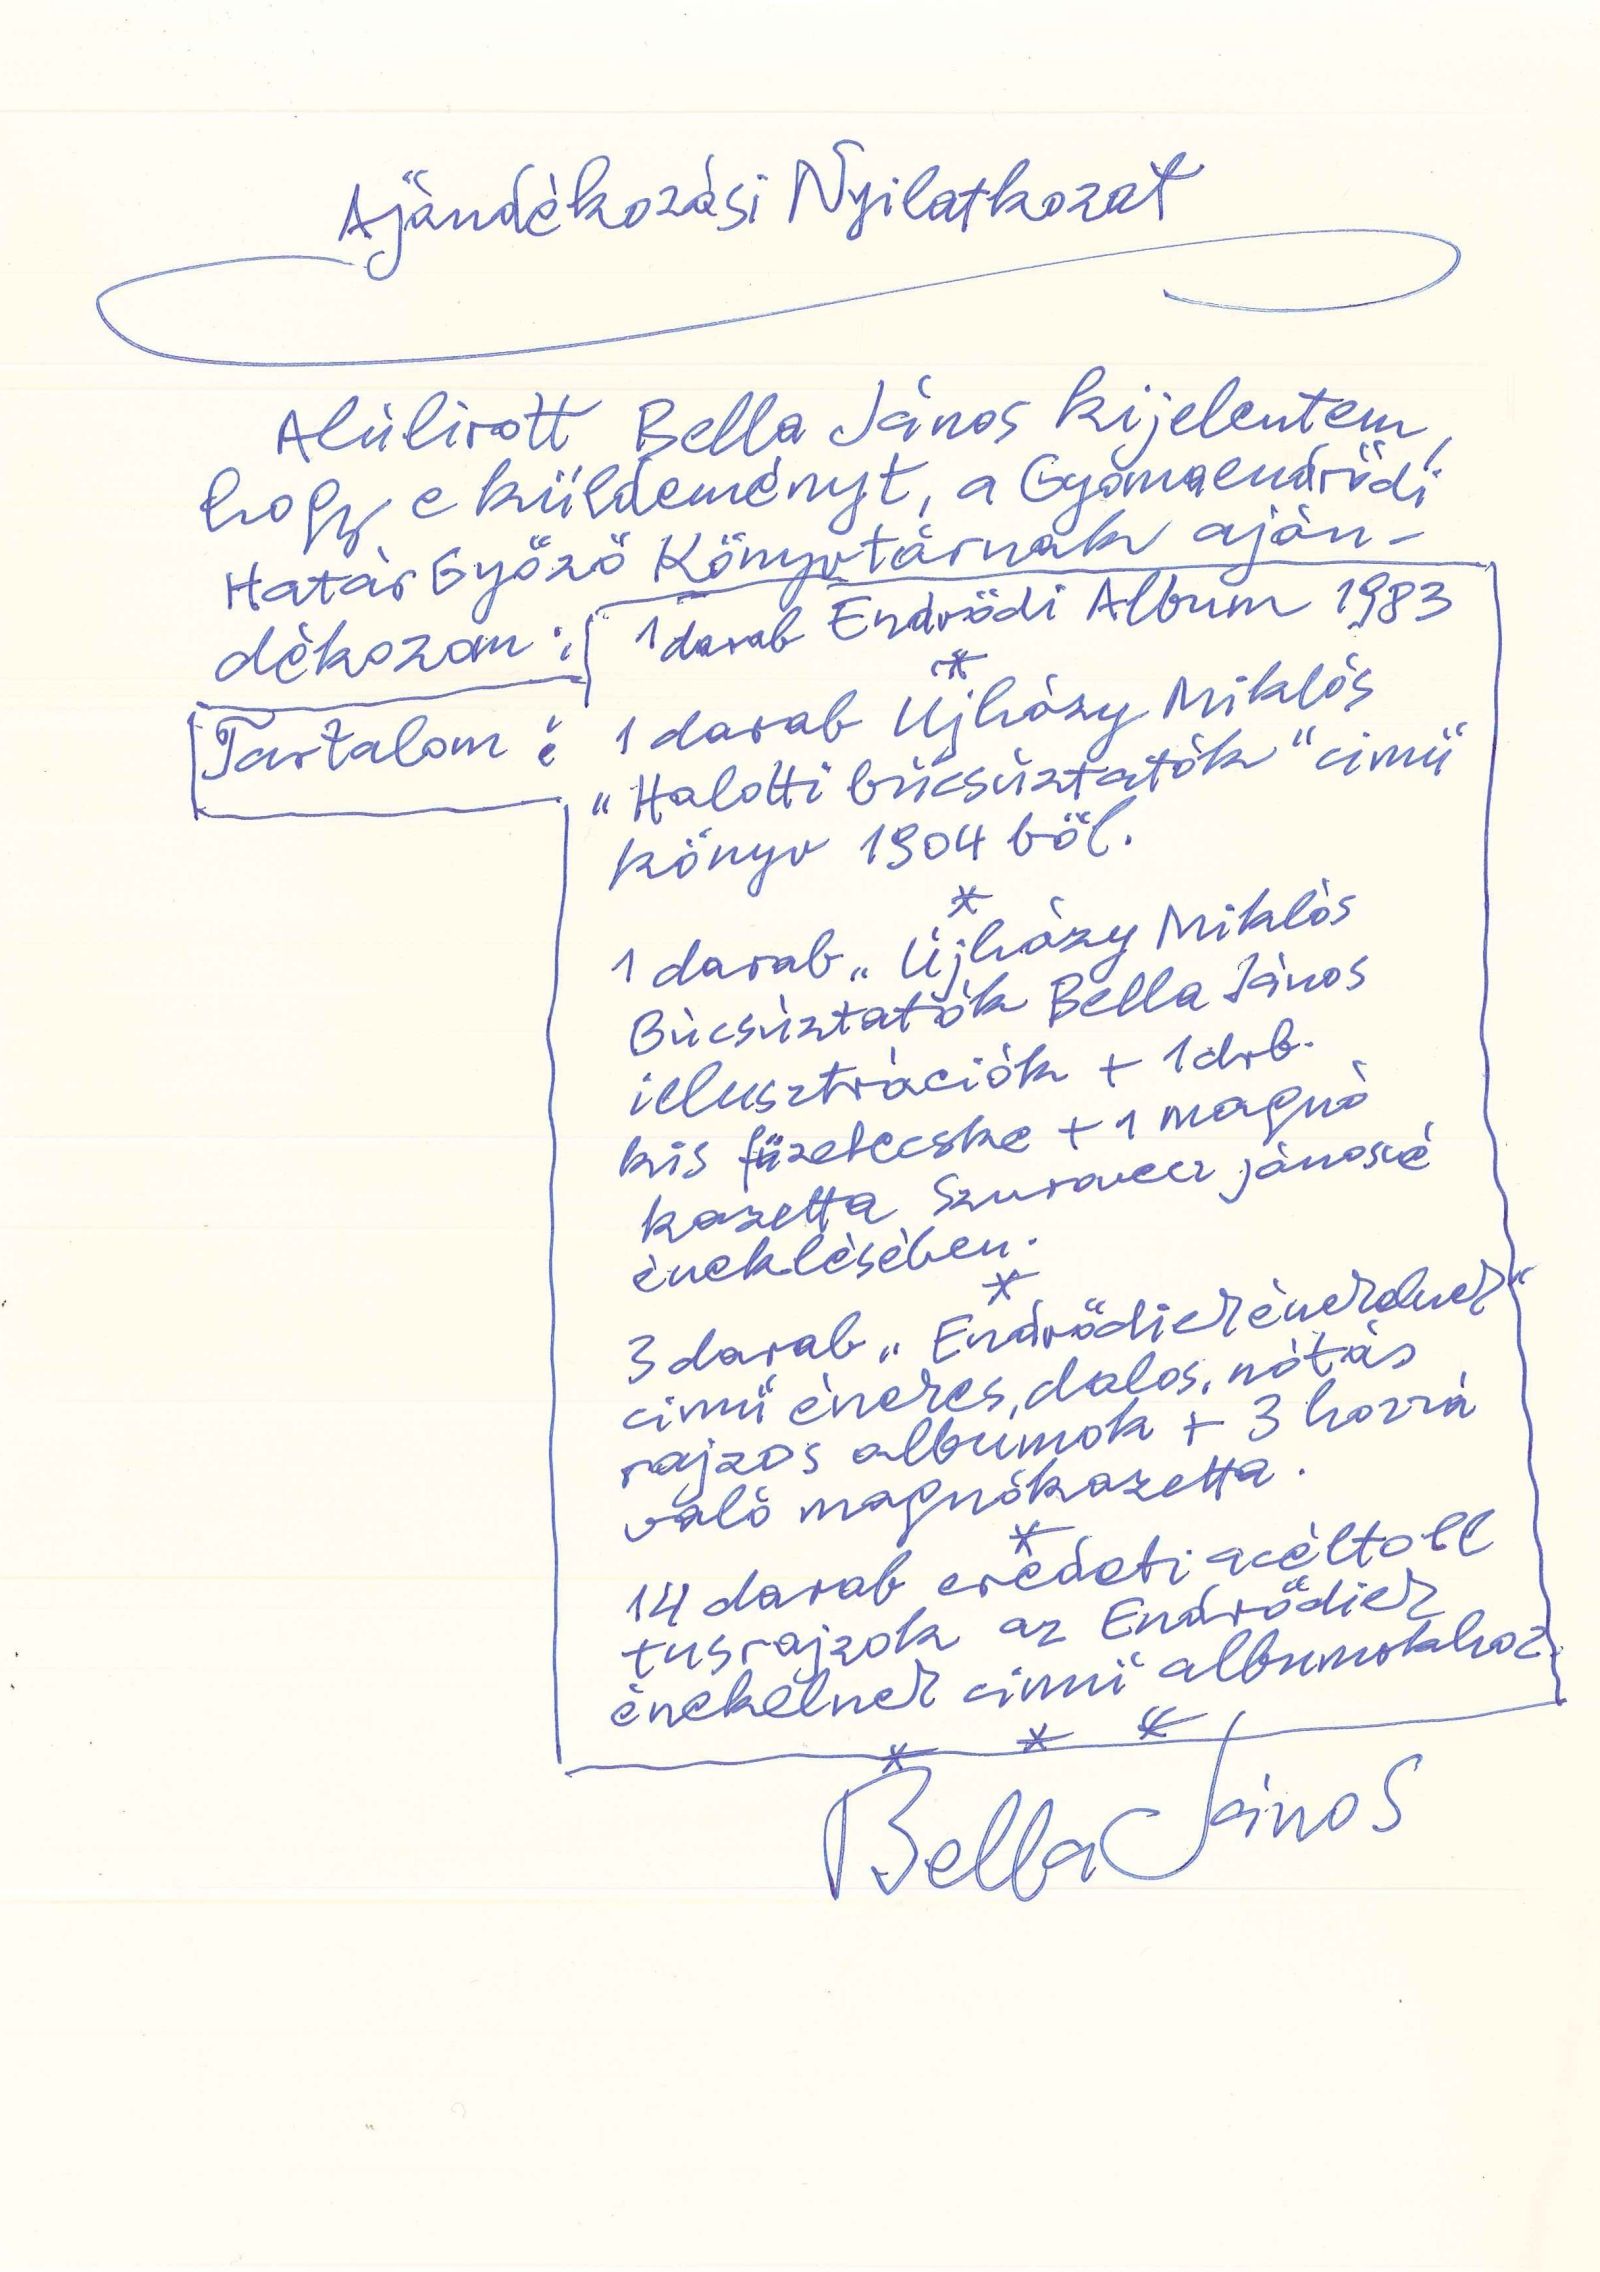 Ajándékozási Nyilatkozat
Alúlirott Bella János kijelentem,
hogy e küldeményt, a Gyomaendrődi
Határ Győző Könyvtárnak aján-
dékozom :
1 darab Endrődi Album 1983
*
Tartalom :
1 darab Újházy Miklós
„Halotti búcsúztatók" cimű
könyv 1904 ből.
*
1 darab „Újházy Miklós
Búcsúztatók Bella János
illusztrációk + 1 drb.
kis füzetecske + 1 magnó
kazetta Szuravecz Jánosné
éneklésében.
*
3 darab „Endrődiek énekelnek"
cimű énekes, dalos, nótás
rajzos albumok + 3 hozzá
való magnókazetta.
*
14 darab eredeti acéltoll
tusrajzok az Endrődiek
énekelnek cimű albumokhoz.
* * *
Bella János